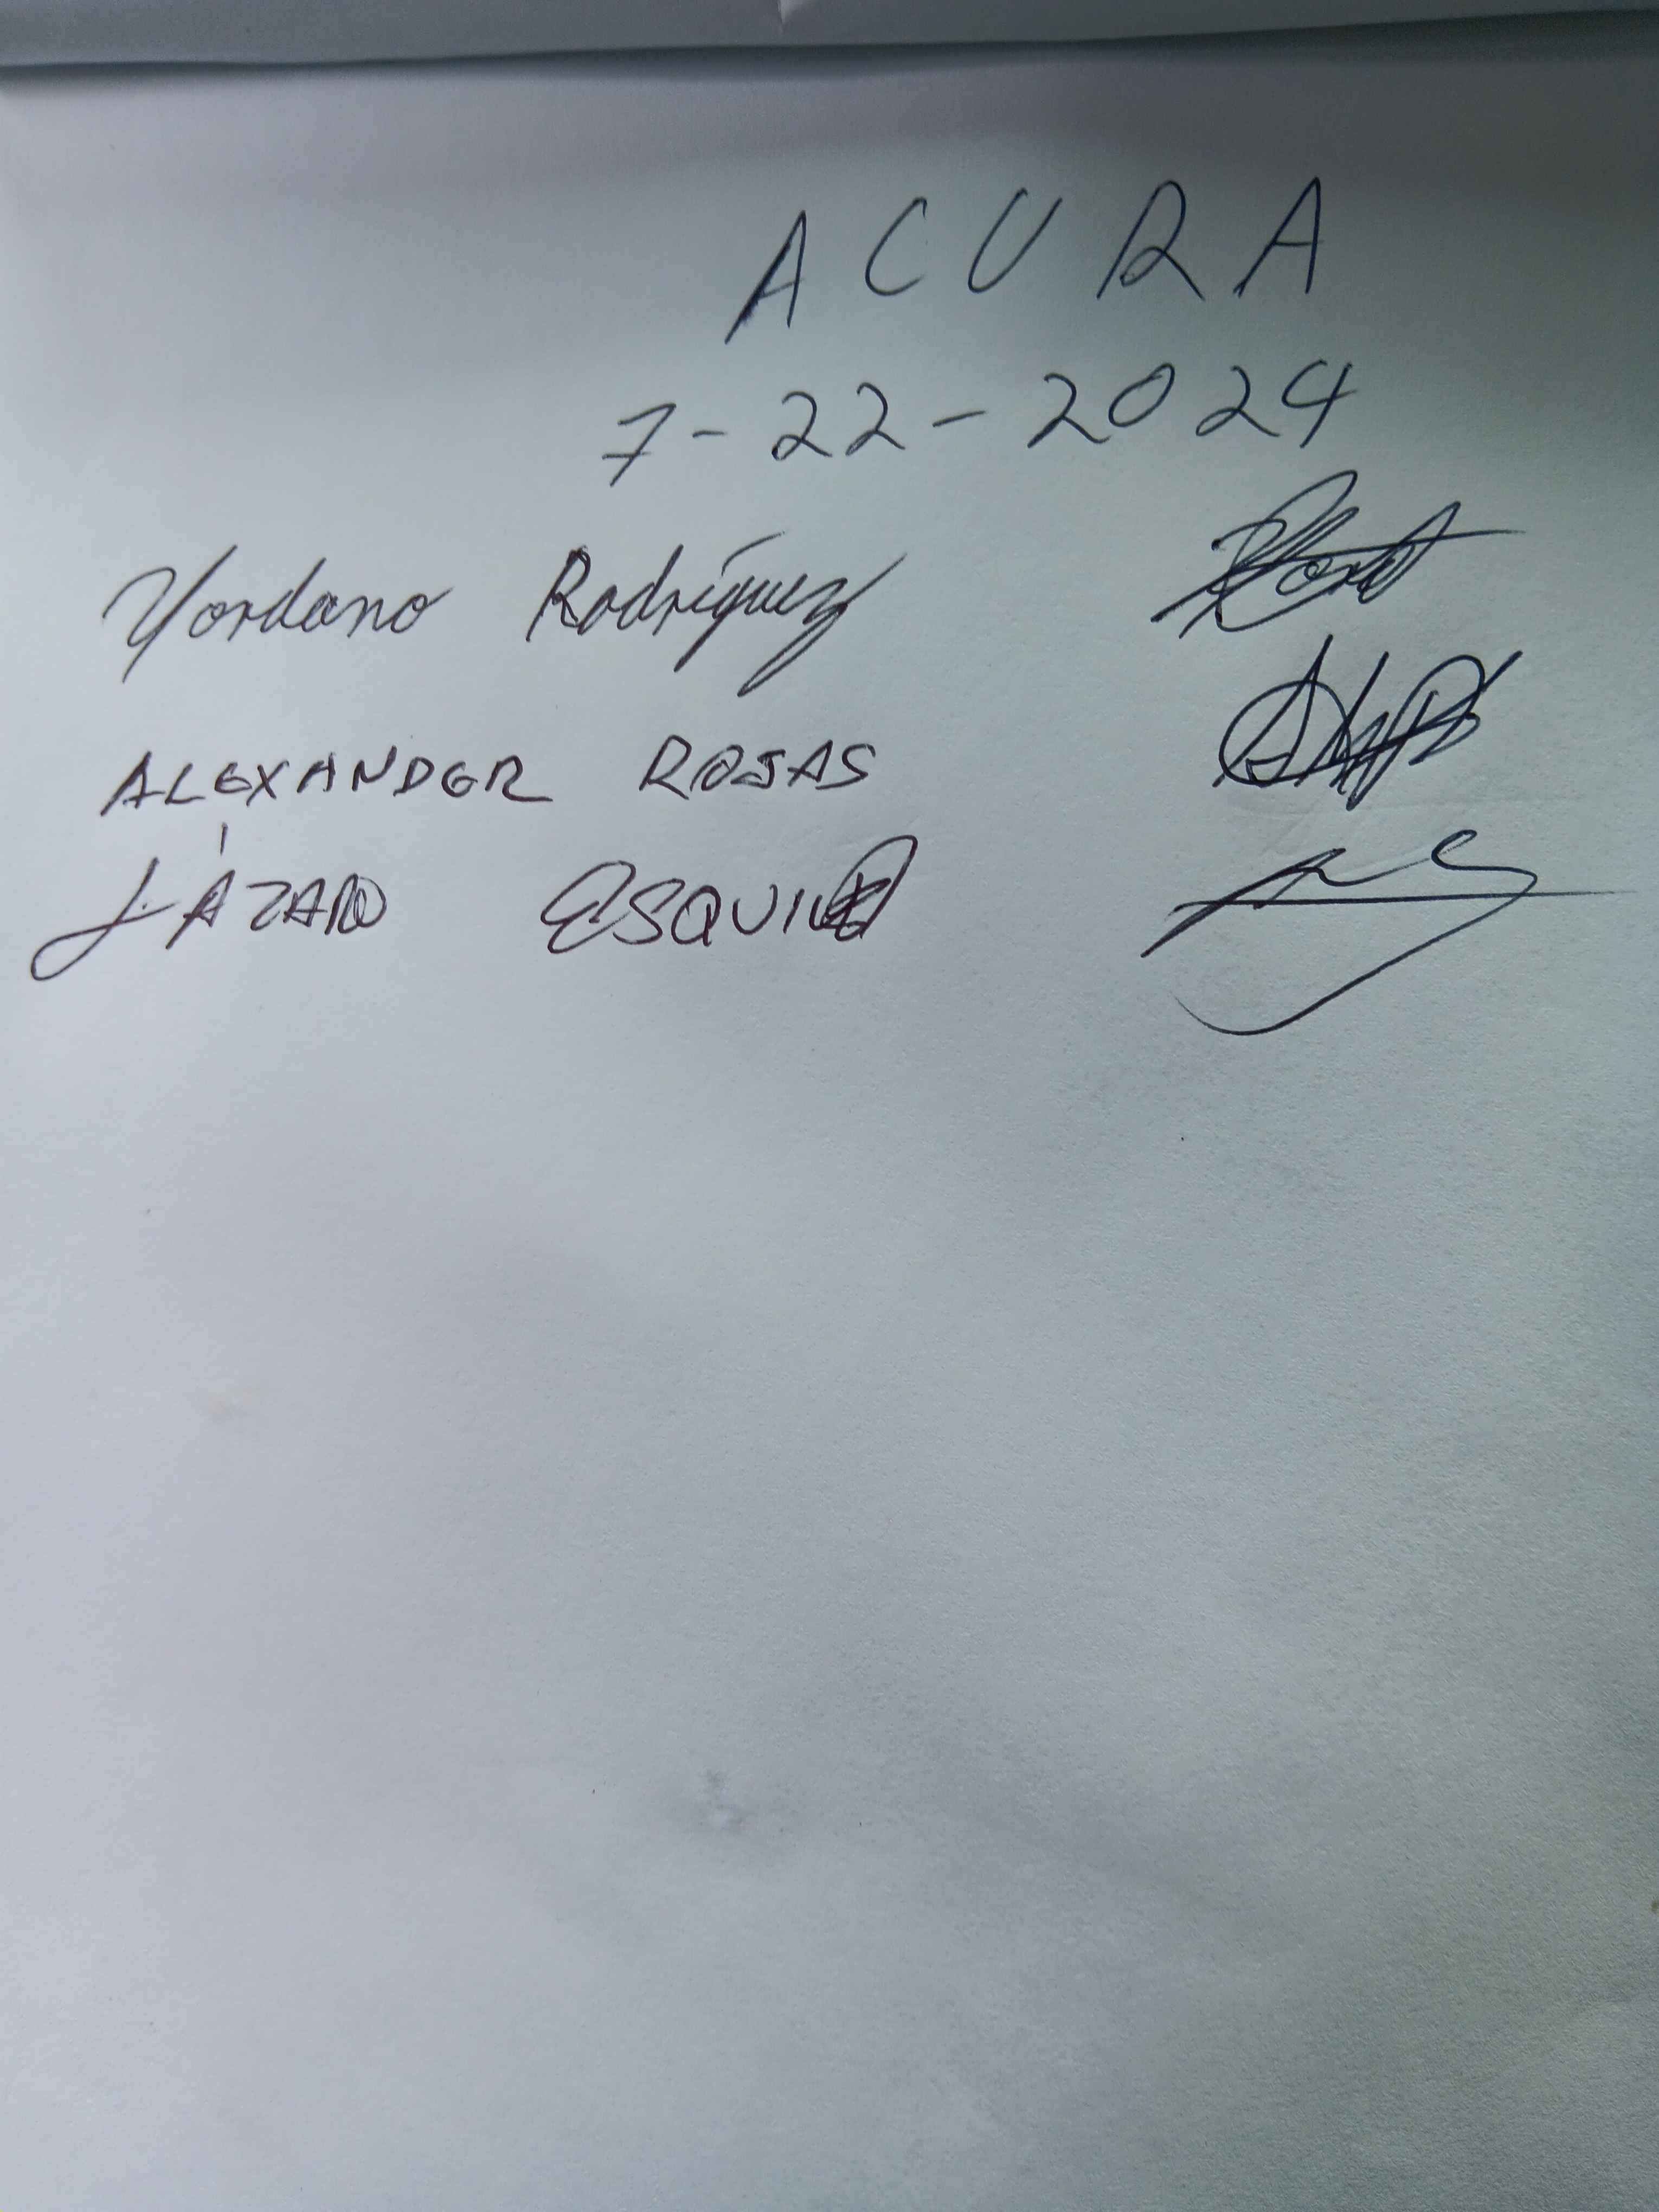 ACURA
7-22-2024
Yordano Rodríguez
ALEXANDER ROJAS
LÁZARO